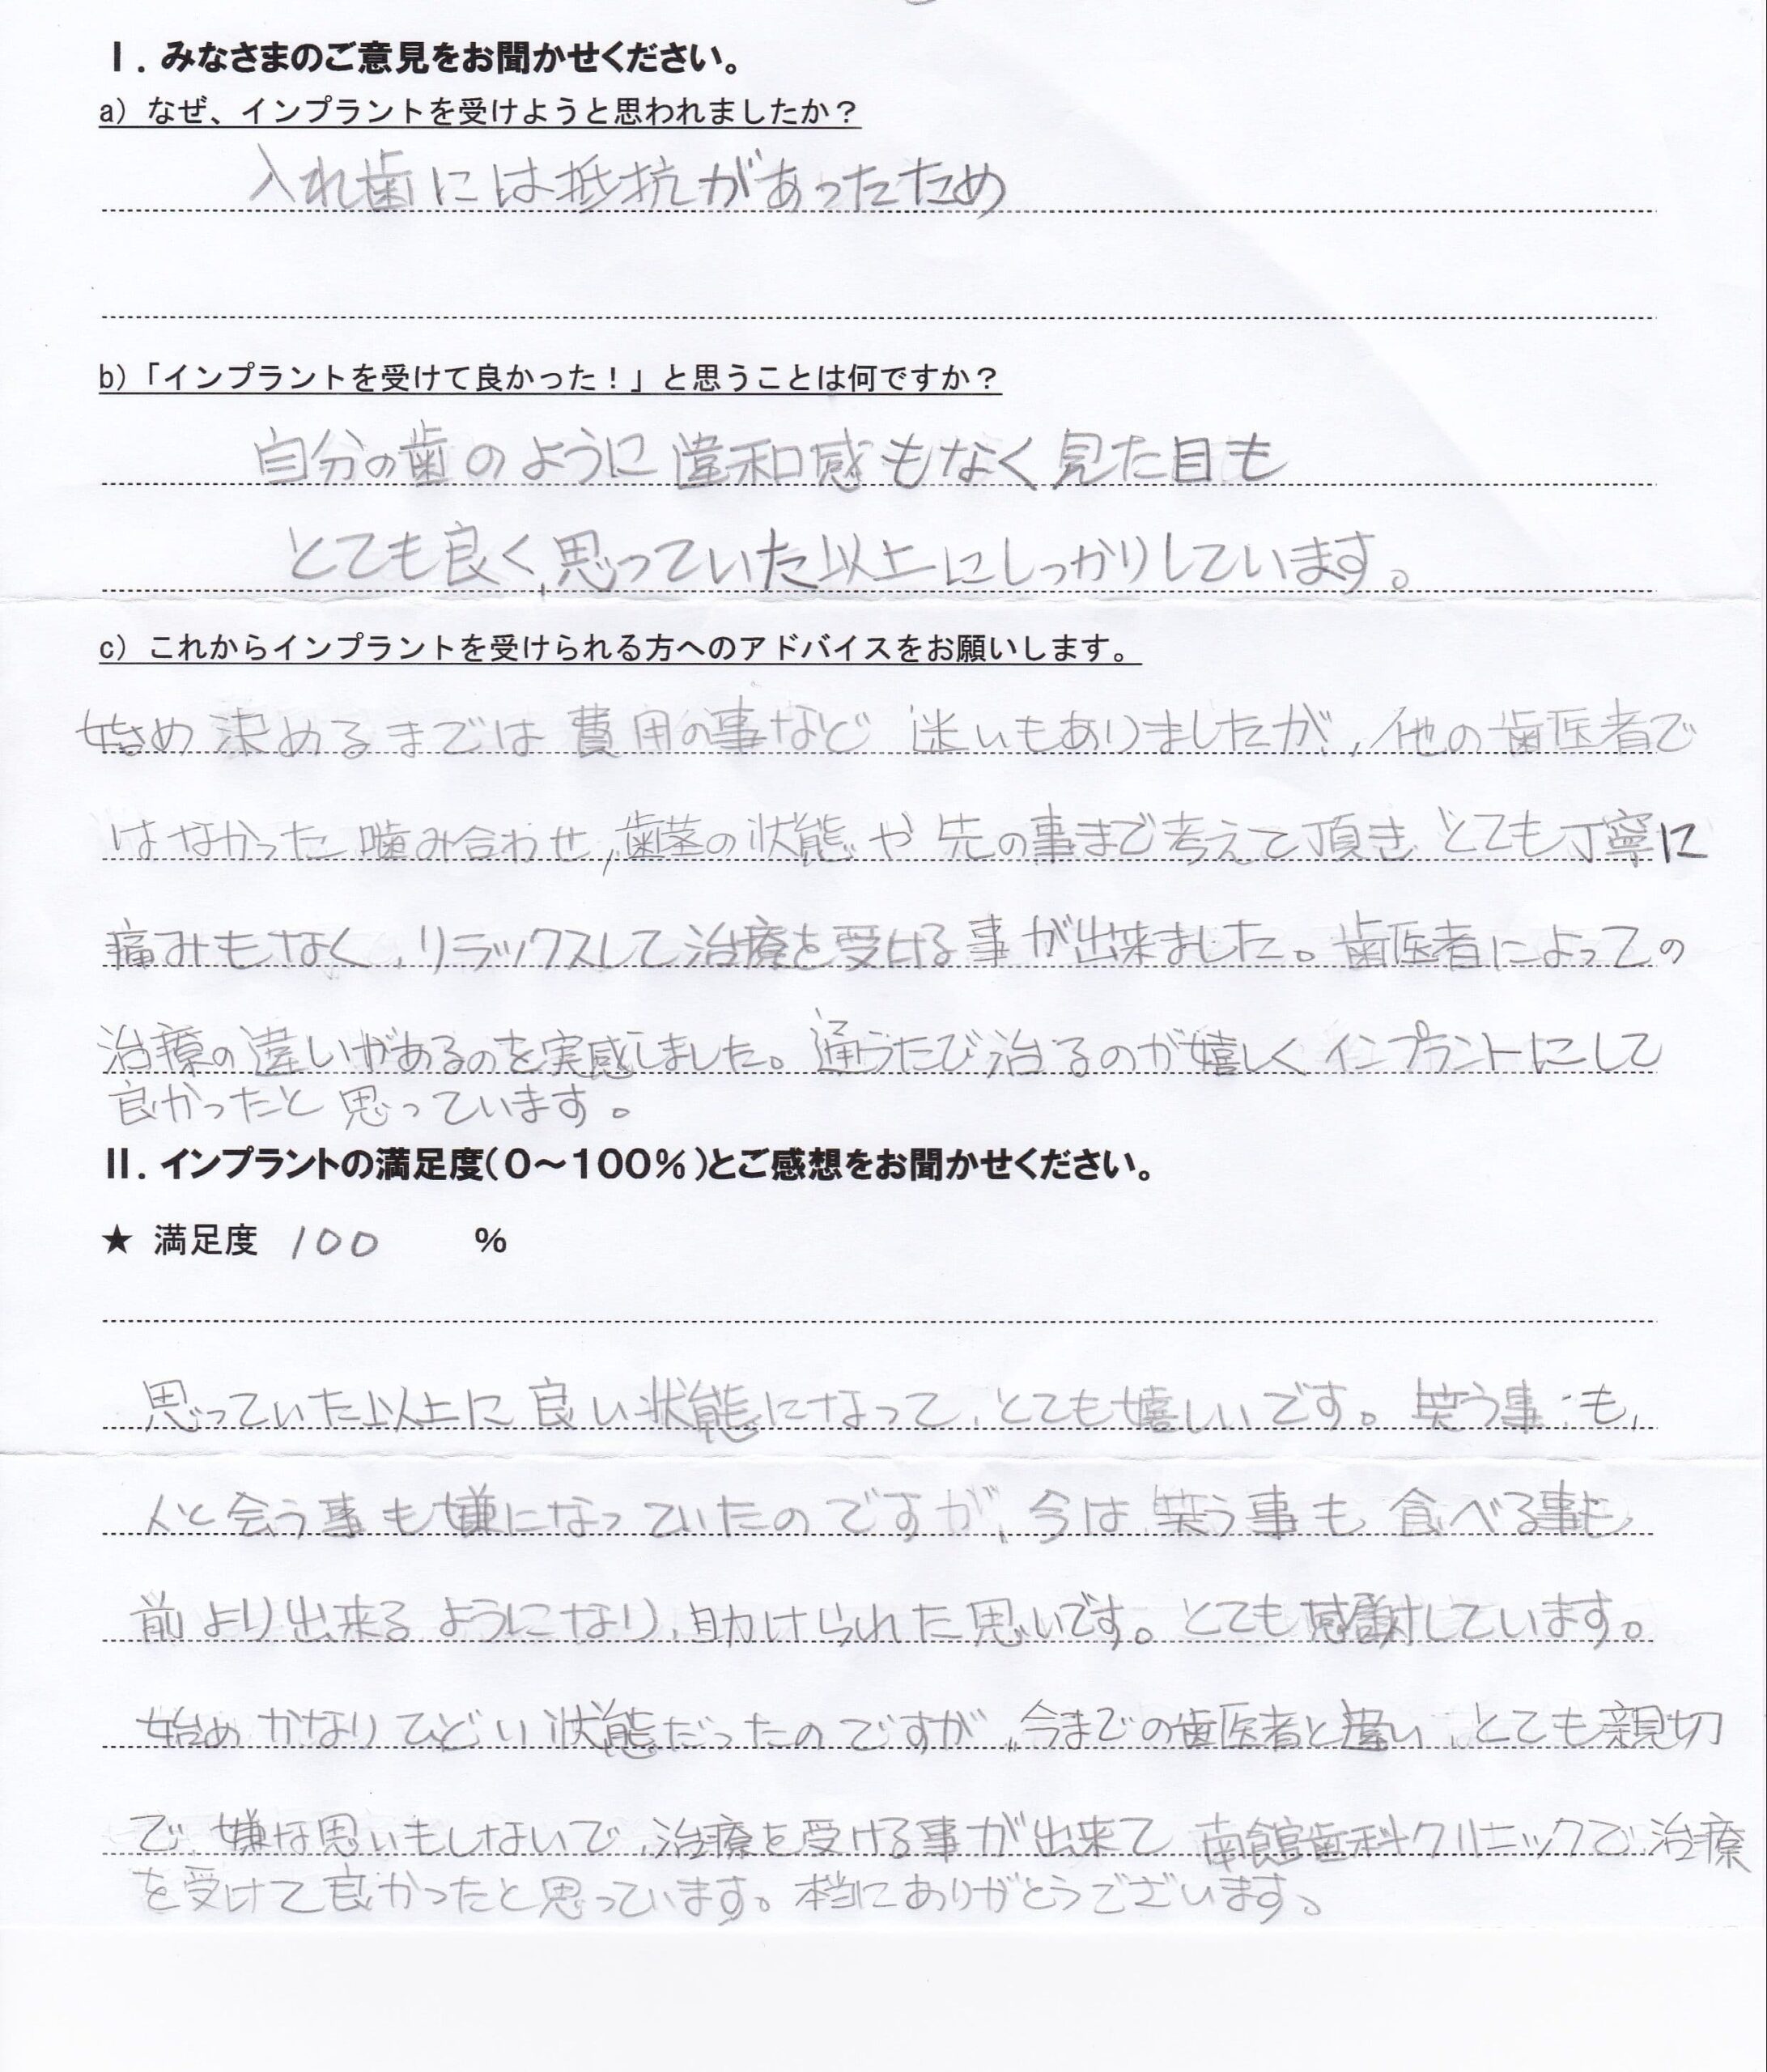 I. みなさまのご意見をお聞かせください。
a) なぜ、インプラントを受けようと思われましたか？
入れ歯には抵抗があったため
b)「インプラントを受けて良かった！」と思うことは何ですか？
自分の歯のように違和感もなく見た目も
とても良く、思っていた以上にしっかりしています。
c) これからインプラントを受けられる方へのアドバイスをお願いします。
始め決めるまでは費用の事など迷いもありましたが、他の歯医者で
はなかった噛み合わせ、歯茎の状態や先の事まで考えて頂きとても丁寧に
痛みもなく、リラックスして治療を受ける事が出来ました。歯医者によっての
治療の違いがあるのを実感しました。通うたび治るのが嬉しくインプラントにして
良かったと思っています。
II. インプラントの満足度(0～100%)とご感想をお聞かせください。
★ 満足度 100 %
思っていた以上に良い状態になって、とても嬉しいです。笑う事も、
人と会う事も嫌になっていたのですが、今は笑う事も食べる事も
前より出来るようになり、助けられた思いです。とても感謝しています。
始めかなりひどい状態だったのですが、今までの歯医者と違い、とても親切
で、嫌な思いもしないで、治療を受ける事が出来て南館歯科クリニックで治療
を受けて良かったと思っています。本当にありがとうございます。